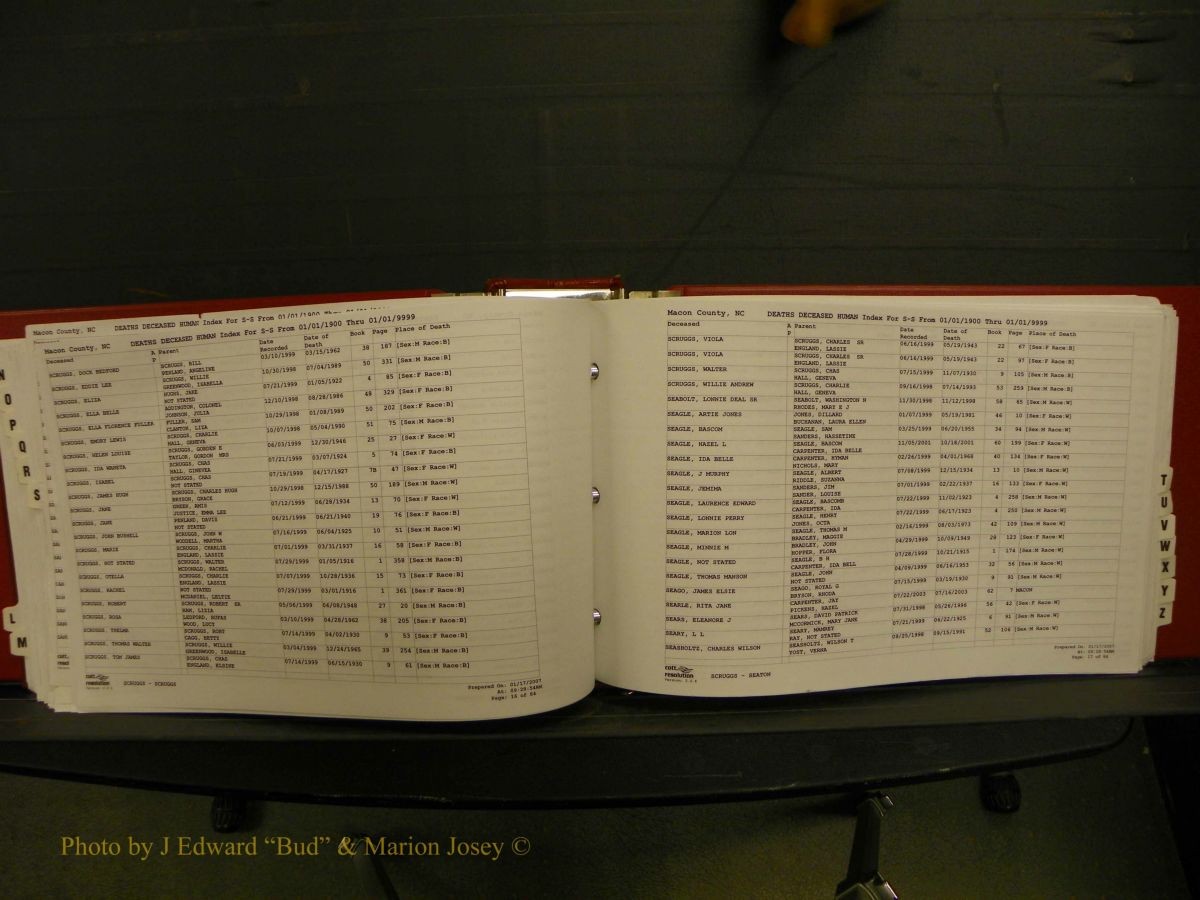 Macon County, NC DEATHS DECEASED HUMAN Index For S-S From 01/01/1900 Thru 01/01/9999
Deceased A Parent Date Recorded Date of Death Book Page Place of Death
P
SCRUGGS, DOCK BEDFORD SCRUGGS, BILL 03/10/1999 03/15/1962 38 187 [Sex:M Race:B]
PENLAND, ANGELINE
SCRUGGS, EDDIE LEE SCRUGGS, WILLIE 10/30/1998 07/04/1989 50 331 [Sex:M Race:B]
GREENWOOD, ISABELLA
SCRUGGS, ELIZA HOGHS, JAKE 07/21/1999 01/05/1922 4 85 [Sex:F Race:B]
NOT STATED
SCRUGGS, ELLA BELLE ADDINGTON, COLONEL 12/10/1998 08/28/1986 48 329 [Sex:F Race:B]
JOHNSON, JULIA
SCRUGGS, ELLA FLORENCE FULLER FULLER, SAM 10/29/1998 01/08/1989 50 202 [Sex:F Race:B]
CLANTON, LIZA
SCRUGGS, EMORY LEWIS SCRUGGS, CHARLIE 10/07/1998 05/04/1990 51 75 [Sex:M Race:B]
HALL, GENEVA
SCRUGGS, HELEN LOUISE SCRUGGS, GORDEN E 06/03/1999 12/30/1946 25 27 [Sex:F Race:W]
TAYLOR, GORDON MRS
SCRUGGS, IDA WANETA SCRUGGS, CHAS 07/21/1999 03/07/1924 5 74 [Sex:F Race:B]
HALL, GINEVEA
SCRUGGS, ISABEL SCRUGGS, CHAS 07/19/1999 04/17/1927 7B 47 [Sex:F Race:W]
NOT STATED
SCRUGGS, JAMES HUGH SCRUGGS, CHARLES HUGH 10/29/1998 12/15/1988 50 189 [Sex:M Race:W]
BRYSON, GRACE
SCRUGGS, JANE GREEN, AMIS 07/12/1999 06/28/1934 13 70 [Sex:F Race:W]
JUSTICE, EMMA LEE
SCRUGGS, JANE PENLAND, DAVIS 06/21/1999 06/21/1940 19 76 [Sex:F Race:B]
NOT STATED
SCRUGGS, JOHN BURRELL SCRUGGS, JOHN W 07/16/1999 06/04/1925 10 51 [Sex:M Race:W]
WOODELL, MARTHA
SCRUGGS, MARIE SCRUGGS, CHARLIE 07/01/1999 03/31/1937 16 58 [Sex:F Race:B]
ENGLAND, LASSIE
SCRUGGS, NOT STATED SCRUGGS, WALTER 07/29/1999 01/05/1916 1 358 [Sex:M Race:B]
MCDONALD, RACHEL
SCRUGGS, OTELLA SCRUGGS, CHARLIE 07/07/1999 10/28/1936 15 73 [Sex:F Race:B]
ENGLAND, LASSIE
SCRUGGS, RACHEL NOT STATED 07/29/1999 03/01/1916 1 361 [Sex:F Race:B]
MCDANIEL, LELFIE
SCRUGGS, ROBERT SCRUGGS, ROBERT SR 05/06/1999 04/08/1948 27 20 [Sex:M Race:B]
HAM, LIZIA
SCRUGGS, ROSA LEDFORD, RUFAS 03/10/1999 04/28/1962 38 205 [Sex:F Race:B]
WOOD, LUCY
SCRUGGS, THELMA SCRUGGS, ROBT 07/14/1999 04/02/1930 9 53 [Sex:F Race:B]
CAGG, BETTY
SCRUGGS, THOMAS WALTER SCRUGGS, WILLIE 03/04/1999 12/24/1965 39 254 [Sex:M Race:B]
GREENWOOD, ISABELLE
SCRUGGS, TOM JAMES SCRUGGS, CHAS 07/14/1999 06/15/1930 9 61 [Sex:M Race:B]
ENGLAND, ELSINE
cott
resolution
SCRUGGS - SCRUGGS
Prepared On: 01/17/2007
At: 09:29:34AM
Page: 16 of 64
Macon County, NC DEATHS DECEASED HUMAN Index For S-S From 01/01/1900 Thru 01/01/9999
Deceased A Parent Date Recorded Date of Death Book Page Place of Death
P
SCRUGGS, VIOLA SCRUGGS, CHARLES SR 06/16/1999 05/19/1943 22 67 [Sex:F Race:B]
ENGLAND, LASSIE
SCRUGGS, VIOLA SCRUGGS, CHARLES SR 06/16/1999 05/19/1943 22 97 [Sex:F Race:B]
ENGLAND, LASSIE
SCRUGGS, WALTER SCRUGGS, CHAS 07/15/1999 11/07/1930 9 105 [Sex:M Race:B]
HALL, GENEVA
SCRUGGS, WILLIE ANDREW SCRUGGS, CHARLIE 09/16/1998 07/14/1993 53 259 [Sex:M Race:B]
HALL, GENEVA
SEABOLT, LONNIE DEAL SR SEABOLT, WASHINGTON N 11/30/1998 11/12/1998 58 65 [Sex:M Race:W]
RHODES, MARY E J
SEAGLE, ARTIE JONES JONES, DILLARD 01/07/1999 05/19/1981 46 10 [Sex:F Race:W]
BUCHANAN, LAURA ELLEN
SEAGLE, BASCOM SEAGLE, SAM 03/25/1999 06/20/1955 34 94 [Sex:M Race:W]
SANDERS, HASSETINE
SEAGLE, HAZEL L SEAGLE, BASCOM 11/05/2001 10/18/2001 60 199 [Sex:F Race:W]
CARPENTER, IDA BELLE
SEAGLE, IDA BELLE CARPENTER, HYMAN 02/26/1999 04/01/1968 40 134 [Sex:F Race:W]
NICHOLS, MARY
SEAGLE, J MURPHY SEAGLE, ALBERT 07/08/1999 12/15/1934 13 10 [Sex:M Race:W]
RIDDLE, SUZANNA
SEAGLE, JEMIMA SANDERS, JIM 07/01/1999 02/22/1937 16 133 [Sex:F Race:W]
SANDER, LOUISE
SEAGLE, LAURENCE EDWARD SEAGLE, BASCOMB 07/22/1999 11/02/1923 4 258 [Sex:M Race:W]
CARPENTER, IDA
SEAGLE, LONNIE PERRY SEAGLE, HENRY 07/22/1999 06/17/1923 4 250 [Sex:M Race:W]
JONES, OCTA
SEAGLE, MARION LON SEAGLE, THOMAS M 02/16/1999 08/03/1973 42 109 [Sex:M Race:W]
BRADLEY, MAGGIE
SEAGLE, MINNIE M BRADLEY, JOHN 04/29/1999 10/09/1949 28 123 [Sex:F Race:W]
HOPPER, FLORA
SEAGLE, NOT STATED SEAGLE, B H 07/28/1999 10/21/1915 1 174 [Sex:M Race:W]
CARPENTER, IDA BELL
SEAGLE, THOMAS MANSON SEAGLE, JOHN 04/09/1999 06/16/1953 32 56 [Sex:M Race:W]
NOT STATED
SEAGO, JAMES ELSIE SEAGO, ROYAL G 07/15/1999 03/19/1930 9 91 [Sex:M Race:W]
BRYSON, RHODA
SEARLE, RITA JANE CARPENTER, JAY 07/22/2003 07/16/2003 62 7 MACON
PICKENS, HAZEL
SEARS, ELEANORE J SEARS, DAVID PATRICK 07/31/1998 05/26/1996 56 42 [Sex:F Race:W]
MCCORMICK, MARY JANE
SEARY, L L SEARY, MAMREY 07/21/1999 06/22/1925 6 91 [Sex:M Race:W]
RAY, NOT STATED
SEASHOLTZ, CHARLES WILSON SEASHOLTZ, WILSON T 09/25/1998 09/15/1991 52 106 [Sex:M Race:W]
YOST, VERNA
cott
resolution
SCRUGGS - SEATON
Prepared On: 01/17/2007
At: 09:29:34AM
Page: 17 of 64
N
O
P
Q
R
S
L
M
T
U
V
W
X
Y
Z
Photo by J Edward “Bud” & Marion Josey ©